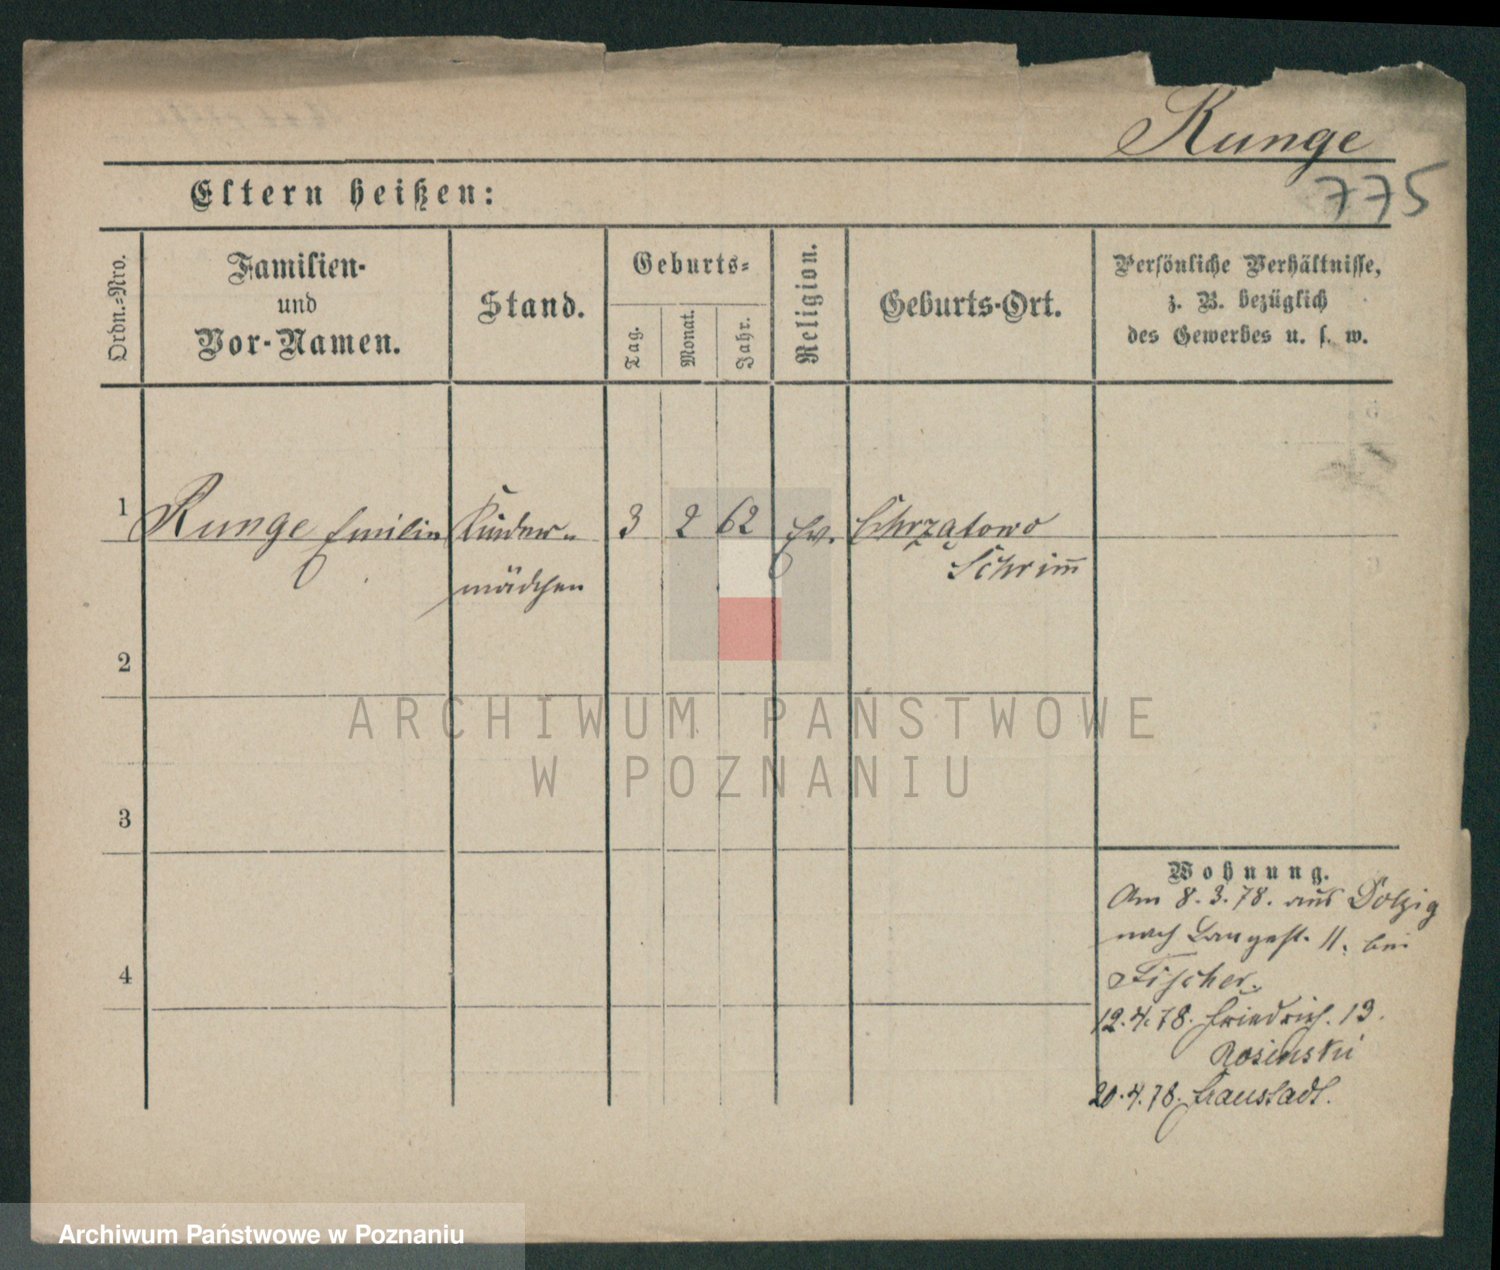 Runge
775
Eltern heißen:
Ordn.-Nro.
Familien-
und
Vor-Namen.
Stand.
Geburts-
Tag.
Monat.
Jahr.
Religion.
Geburts-Ort.
Persönliche Verhältnisse,
z. B. bezüglich
des Gewerbes u. s. w.
1 Runge Emilie Kinder- 3 2 62 Ev. Chrzątowo
mädchen Schrim̅
2
3
4
Wohnung.
Am 8.3.78. aus Dolzig
nach Langest. 11. bei
Fischer.
12.4.78. Friedrich. 13.
Rosinski
20.4.78. Fraustadt.
ARCHIWUM PAŃSTWOWE
W POZNANIU
Archiwum Państwowe w Poznaniu